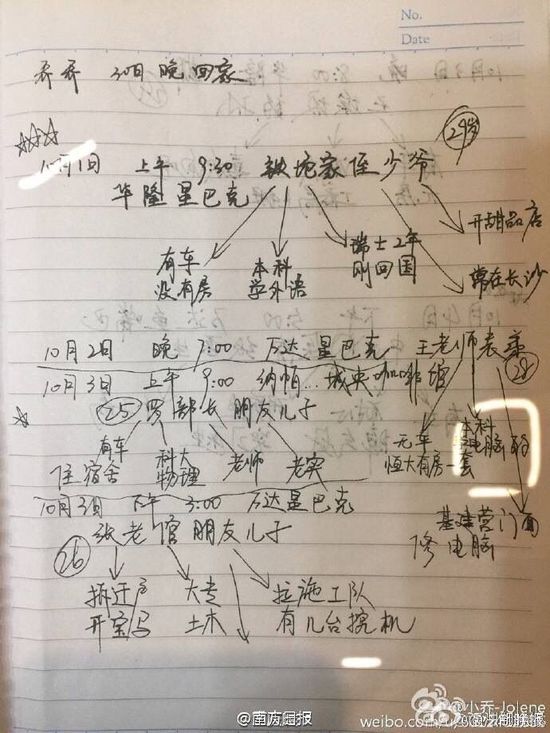 No.
Date
乔乔 30日晚回家
29岁
10月1日 上午 9:30 铁坨家侄少爷
华隆星巴克
开甜品店
有车
没有房
本科
学外语
瑞士2年
刚回国
常在长沙
10月2日 晚 7:00 万达星巴克 王老师表弟
28
10月3日 上午 9:00 纳帕... 城央咖啡馆
25 罗部长朋友儿子
有车
住宿舍
科大
物理
老师
老实
无车
恒大有房一套
本科
电脑
10月3日 下午 3:00 万达星巴克
张老馆朋友儿子
基建营门面
修电脑
26
拆迁户
开宝马
大专
土木
拉施工队
有几台挖机
南方日报
@小乔-Jolene
法制晚报
weibo.com/u/